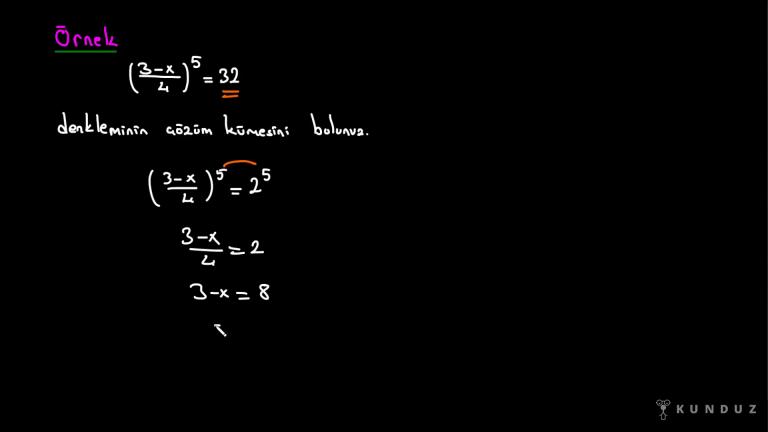 Örnek
(3-x/4)^5 = 32
denkleminin çözüm kümesini bulunuz.
(3-x/4)^5 = 2^5
3-x/4 = 2
3-x = 8
KUNDUZ